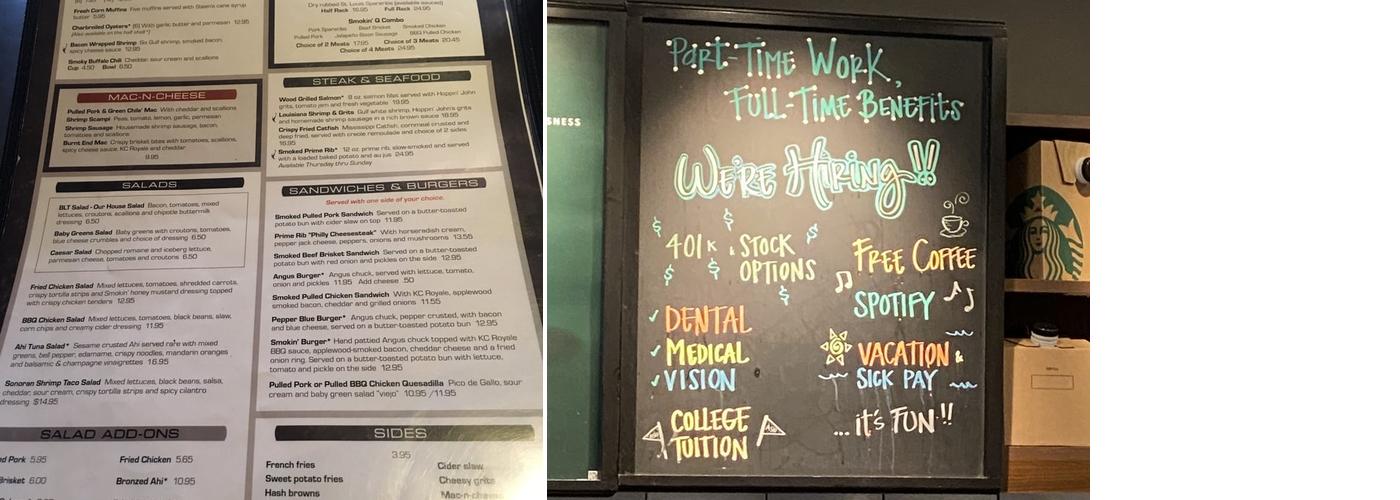 Fresh Corn Muffins Five muffins served with Steen's cane syrup
butter 5.95
Charbroiled Oysters* (6) With garlic butter and parmesan 12.95
(Also available on the half shell *)
Bacon Wrapped Shrimp Six Gulf shrimp, smoked bacon,
spicy cheese sauce 12.95
Smoky Buffalo Chili Cheddar, sour cream and scallions
Cup 4.50 Bowl 6.50
MAC-N-CHEESE
Pulled Pork & Green Chile' Mac With cheddar and scallions
Shrimp Scampi Peas, tomato, lemon, garlic, parmesan
Shrimp Sausage Housemade shrimp sausage, bacon,
tomatoes and scallions
Burnt End Mac Crispy brisket bites with tomatoes, scallions,
spicy cheese sauce, KC Royale and cheddar
9.95
SALADS
BLT Salad - Our House Salad Bacon, tomatoes, mixed
lettuces, croutons, scallions and chipotle buttermilk
dressing 6.50
Baby Greens Salad Baby greens with croutons, tomatoes,
blue cheese crumbles and choice of dressing 6.50
Caesar Salad Chopped romaine and iceberg lettuce,
parmesan cheese, tomatoes and croutons 6.50
Fried Chicken Salad Mixed lettuces, tomatoes, shredded carrots,
crispy tortilla strips and Smokin' honey mustard dressing topped
with crispy chicken tenders 12.95
BBQ Chicken Salad Mixed lettuces, tomatoes, black beans, slaw,
corn chips and creamy cider dressing 11.95
Ahi Tuna Salad* Sesame crusted Ahi served rare with mixed
greens, bell pepper, edamame, crispy noodles, mandarin oranges
and balsamic & champagne vinaigrettes 16.95
Sonoran Shrimp Taco Salad Mixed lettuces, black beans, salsa,
cheddar, sour cream, crispy tortilla strips and spicy cilantro
dressing $14.95
SALAD ADD-ONS
Pork 5.95
Fried Chicken 5.65
Brisket 6.00
Bronzed Ahi* 10.95
Dry rubbed St. Louis Spareribs (available sauced)
Half Rack 16.95 Full Rack 24.95
Smokin' Q Combo
Pork Spareribs Beef Brisket Smoked Chicken
Pulled Pork Jalapeño Bacon Sausage BBQ Pulled Chicken
Choice of 2 Meats 17.95 Choice of 3 Meats 20.45
Choice of 4 Meats 24.95
STEAK & SEAFOOD
Wood Grilled Salmon* 8 oz. salmon fillet served with Hoppin' John
grits, tomato jam and fresh vegetable 19.95
Louisiana Shrimp & Grits Gulf white shrimp, Hoppin' John's grits
and homemade shrimp sausage in a rich brown sauce 18.95
Crispy Fried Catfish Mississippi Catfish, cornmeal crusted and
deep fried, served with creole remoulade and choice of 2 sides
16.95
Smoked Prime Rib* 12 oz. prime rib, slow-smoked and served
with a loaded baked potato and au jus 24.95
Available Thursday thru Sunday
SANDWICHES & BURGERS
Served with one side of your choice.
Smoked Pulled Pork Sandwich Served on a butter-toasted
potato bun with cider slaw on top 11.95
Prime Rib "Philly Cheesesteak" With horseradish cream,
pepper jack cheese, peppers, onions and mushrooms 13.55
Smoked Beef Brisket Sandwich Served on a butter-toasted
potato bun with red onion and pickles on the side 12.95
Angus Burger* Angus chuck, served with lettuce, tomato,
onion and pickles 11.95 Add cheese .50
Smoked Pulled Chicken Sandwich With KC Royale, applewood
smoked bacon, cheddar and grilled onions 11.55
Pepper Blue Burger* Angus chuck, pepper crusted, with bacon
and blue cheese, served on a butter-toasted potato bun 12.95
Smokin' Burger* Hand pattied Angus chuck topped with KC Royale
BBQ sauce, applewood-smoked bacon, cheddar cheese and a fried
onion ring. Served on a butter-toasted potato bun with lettuce,
tomato and pickle on the side 12.95
Pulled Pork or Pulled BBQ Chicken Quesadilla Pico de Gallo, sour
cream and baby green salad "viejo" 10.95 /11.95
SIDES
3.95
French fries
Cider slaw
Sweet potato fries
Cheesy grits
Hash browns
Mac-n-cheese
SNESS
PART-TIME WORK,
FULL-TIME BENEFITS
WE'RE HIRING!!
401K & STOCK
OPTIONS
FREE COFFEE
SPOTIFY
DENTAL
MEDICAL
VISION
VACATION &
SICK PAY
COLLEGE
TUITION
...it's FUN!!